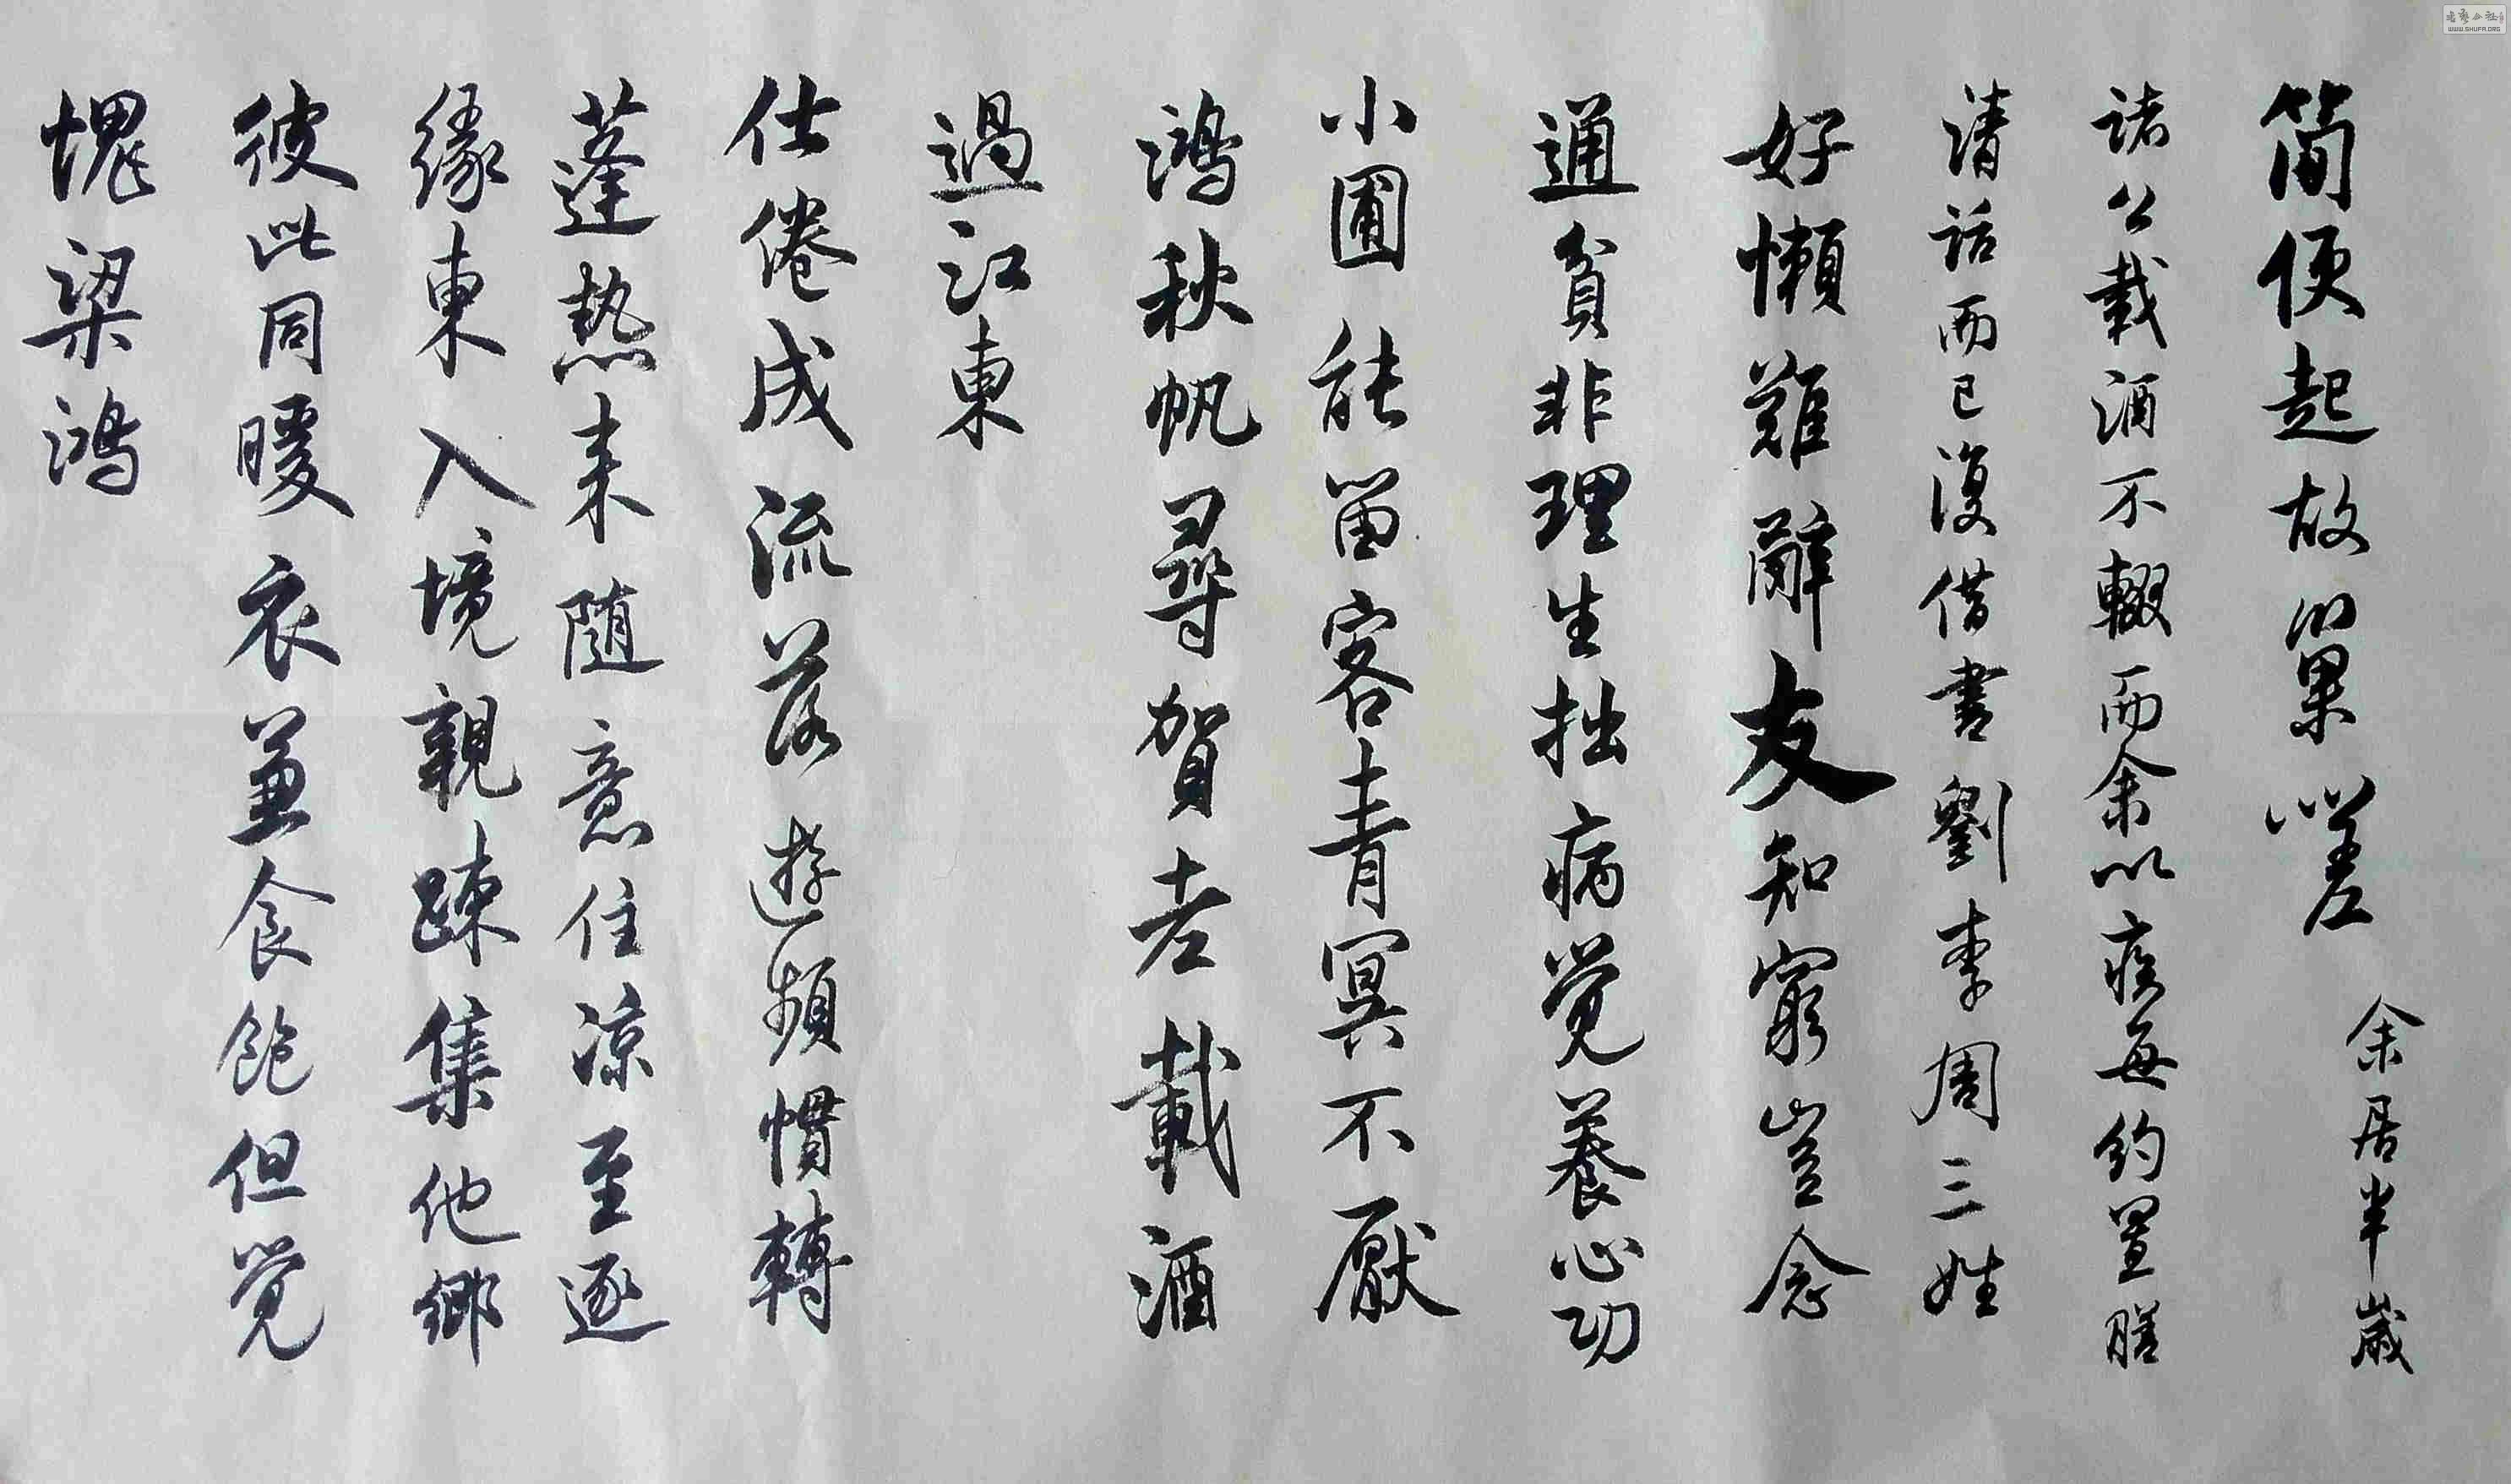 簡便起故巢嗟余居半歲
諸公載酒不輟而余以疾每約置膳
清話而已復借書劉李周三姓
好懶難辭友知窮豈念
通貧非理生拙病覺養心功
小圃能留客青冥不厭
鴻秋帆尋賀老載酒
過江東
仕倦成流落遊頻慣轉
蓬熱来隨意住涼至逐
緣東入境親踈集他鄉
彼此同暖衣兼食飽但覺
愧梁鴻
WWW.SHUFA.ORG